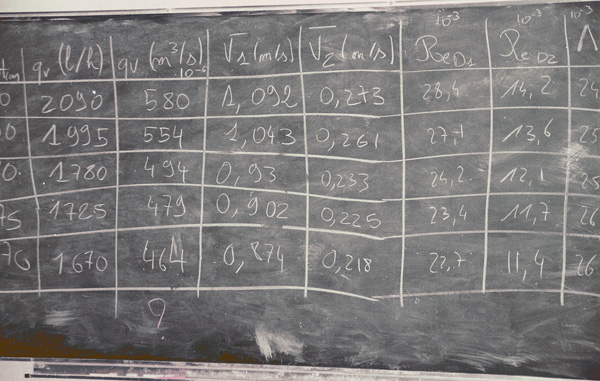 10⁻³ 10⁻³ 10⁻³
qv (l/h) qv (m³/s) V1 (m/s) V2 (m/s) ReD1 ReD2 Λ
10⁻⁶
0 2090 580 1,092 0,273 28,4 14,2 24
0 1995 554 1,043 0,261 27,1 13,6 25
0 1780 494 0,93 0,233 24,2 12,1 25
75 1725 479 0,902 0,225 23,4 11,7 26
70 1670 464 0,874 0,218 22,7 11,4 26